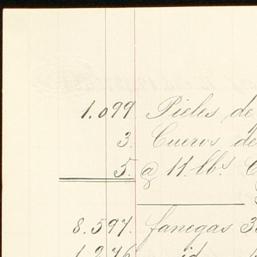 1.099 Pieles de
3. Cueros de
5. @ 11. lbs
8.597. fanegas 3
1.276 id